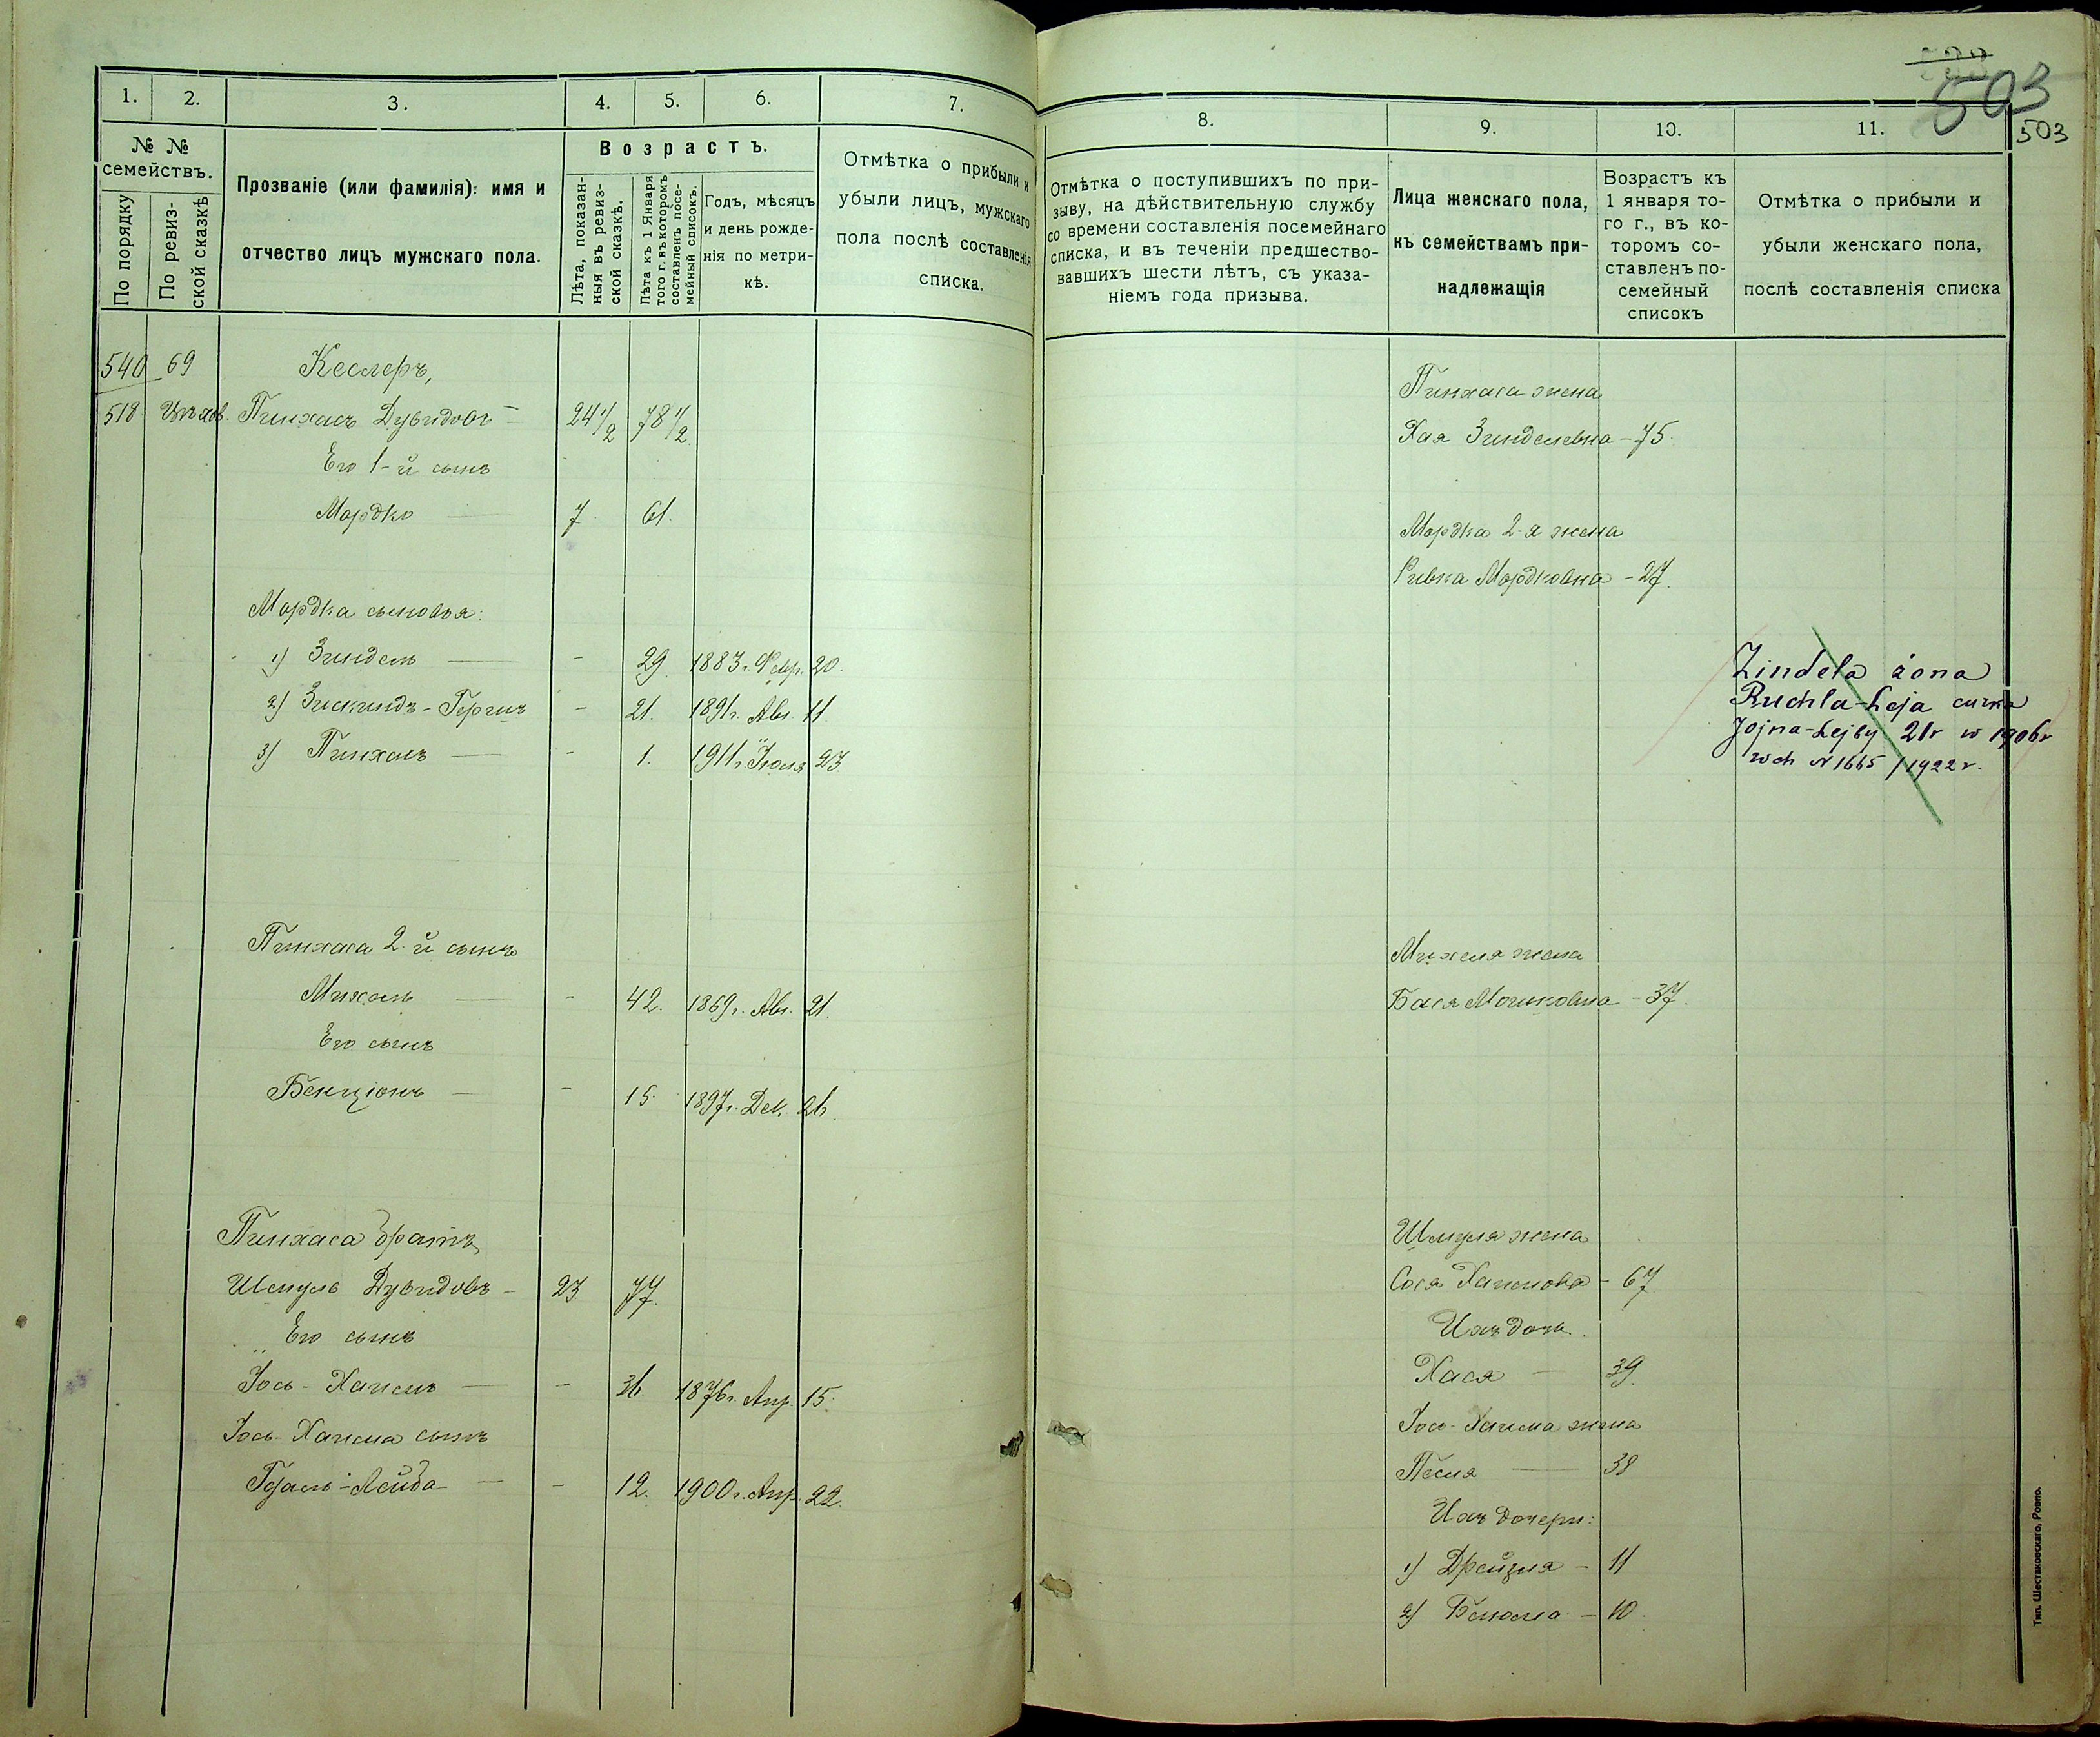 1.
2.
3.
4.
5.
6.
7.
№ №
семействъ.
По порядку
По ревиз-
ской сказкѣ
Прозваніе (или фамилія): имя и
отчество лицъ мужскаго пола.
Возрастъ.
Лѣта, показан-
ныя въ ревиз-
ской сказкѣ.
Лѣта къ 1 Января
того г. въ которомъ
составленъ посе-
мейный списокъ.
Годъ, мѣсяцъ
и день рожде-
нія по метри-
кѣ.
Отмѣтка о прибыли и
убыли лицъ, мужскаго
пола послѣ составленія
списка.
540 69 Кеслеръ,
518 Пинхасъ Дувидовъ — 24 1/2 78 1/2
Его 1-й сынъ
Мордко — 7. 61.
Мордка сыновья:
1) Зиндель — - 29. 1883 г. Февр. 20.
2) Зискиндъ-Гершъ - 21. 1891 г. Авг. 11
3) Пинхасъ — - 1. 1911 г. Іюля 23
Пинхаса 2-й сынъ
Михель — - 42. 1869 г. Авг. 21.
Его сынъ
Бенціонъ — - 15. 1897 г. Дек. 26.
Пинхаса братъ
Шмуль Дувидовъ — 23. 77.
Его сынъ
Іось-Хаимъ — - 36. 1876 г. Апр. 15.
Іось-Хаима сынъ
Лейба — - 12. 1900 г. Апр. 22.
503
503
8.
9.
10.
11.
Отмѣтка о поступившихъ по при-
зыву, на дѣйствительную службу
со времени составленія посемейнаго
списка, и въ теченіи предшество-
вавшихъ шести лѣтъ, съ указа-
ніемъ года призыва.
Лица женскаго пола,
къ семействамъ при-
надлежащія
Возрастъ къ
1 января то-
го г., въ ко-
торомъ со-
ставленъ по-
семейный
списокъ
Отмѣтка о прибыли и
убыли женскаго пола,
послѣ составленія списка
Пинхаса жена
Хая Зинделевна - 75.
Мордка 2-я жена
Ривка Мордковна - 27.
Zindela żona
Ruchla-Leja curka
Jojna-Lejby 21 r w 1906 r
wch N 1665 / 1922 r.
Михеля жена
Бася Мошковна - 37.
Шмуля жена
Сося Хаимовна - 67
Ихъ дочь.
Хася — 39.
Іось-Хаима жена
Песля — 38
Ихъ дочери:
1) Дрейзля - 11
2) - 10.
Тип. Шестаковскаго, Ровно.